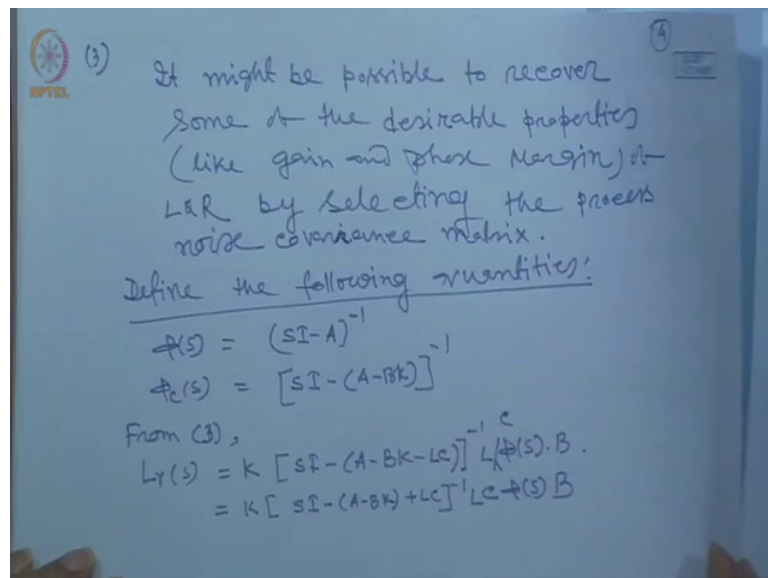 (4)
(3)
NPTEL
It might be possible to recover
some of the desirable properties
(like gain and phase Margin) of
LQR by selecting the process
noise covariance matrix.
Define the following quantities:
Φ(s) = (SI-A)^-1
Φc(s) = [SI-(A-BK)]^-1
From (3),
Lr(s) = K [SI-(A-BK-LC)]^-1 LCΦ(s).B.
= K[ SI-(A-BK)+LC]^-1 LCΦ(s)B